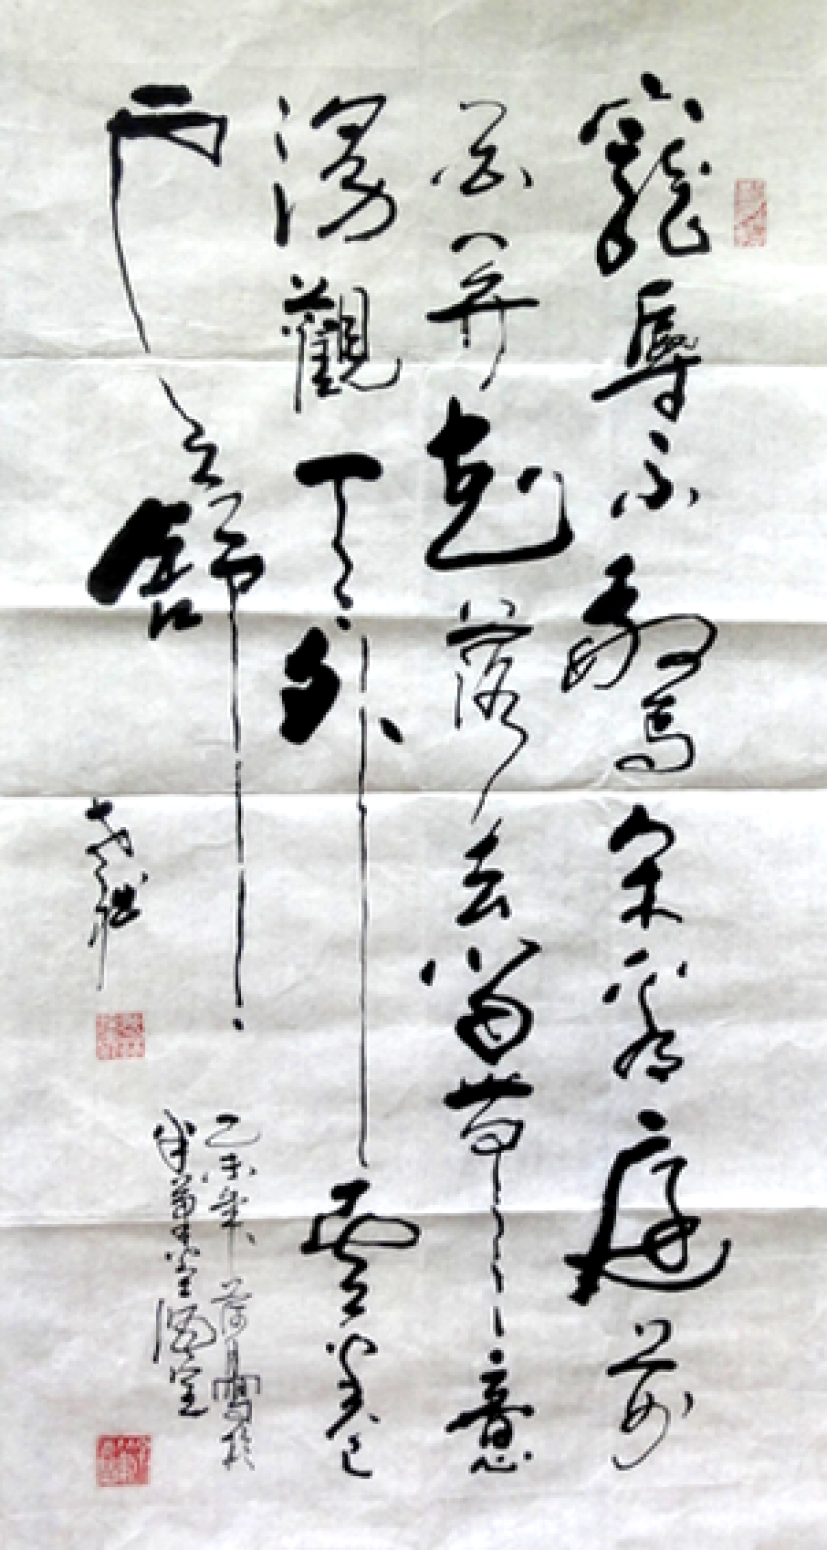 寵辱不驚看庭前
花開花落去留無意
漫觀天外雲卷
雲舒
乙未年荷月寫於